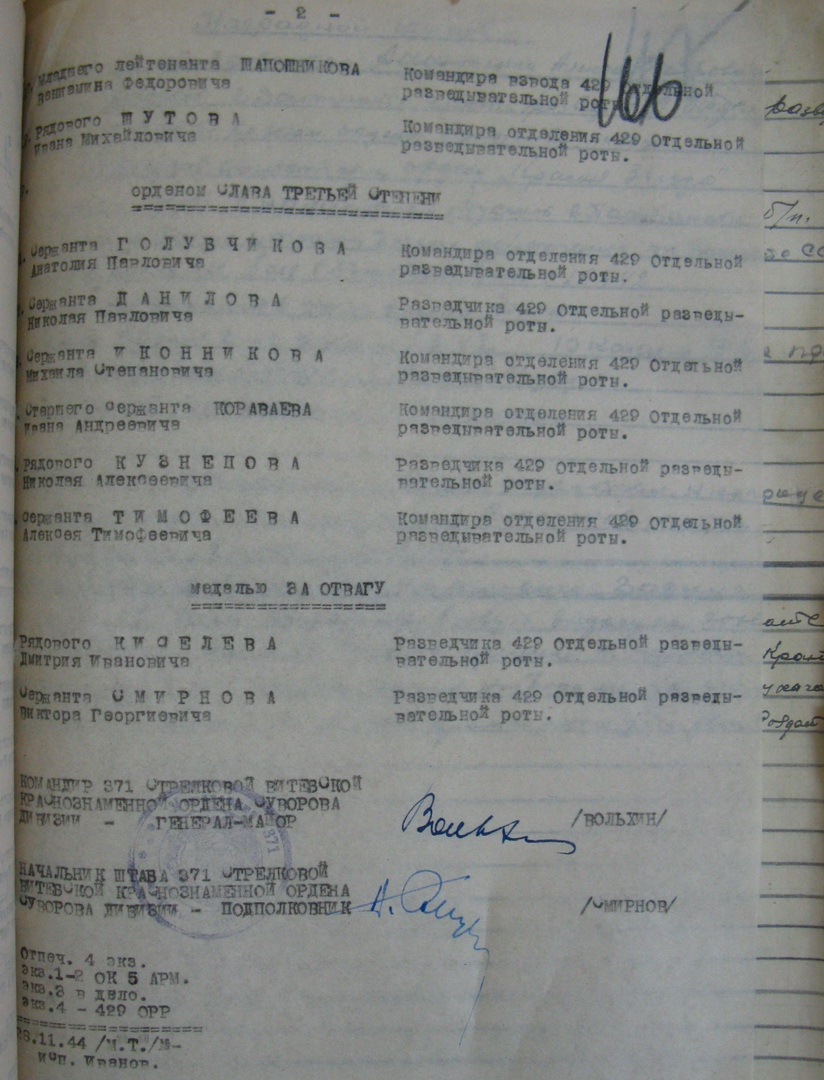 - 2 -
166
Младшего лейтенанта ШАПОШНИКОВА
Вениамина Федоровича
Командира взвода 429 Отдельной
разведывательной роты.
Рядового ШУТОВА
Ивана Михайловича
Командира отделения 429 Отдельной
разведывательной роты.
орденом СЛАВА ТРЕТЬЕЙ СТЕПЕНИ
Сержанта ГОЛУБЧИКОВА
Анатолия Павловича
Командира отделения 429 Отдельной
разведывательной роты.
Сержанта ДАНИЛОВА
Николая Павловича
Разведчика 429 Отдельной разведы-
вательной роты.
Сержанта ИКОННИКОВА
Михаила Степановича
Командира отделения 429 Отдельной
разведывательной роты.
Старшего сержанта КОРАВАЕВА
Ивана Андреевича
Командира отделения 429 Отдельной
разведывательной роты.
Рядового КУЗНЕПОВА
Николая Алексеевича
Разведчика 429 Отдельной разведы-
вательной роты.
Сержанта ТИМОФЕЕВА
Алексея Тимофеевича
Командира отделения 429 Отдельной
разведывательной роты.
медалью ЗА ОТВАГУ
Рядового КИСЕЛЕВА
Дмитрия Ивановича
Разведчика 429 Отдельной разведы-
вательной роты.
Сержанта СМИРНОВА
Виктора Георгиевича
Разведчика 429 Отдельной разведы-
вательной роты.
КОМАНДИР 371 СТРЕЛКОВОЙ ВИТЕБСКОЙ
КРАСНОЗНАМЕННОЙ ОРДЕНА СУВОРОВА
ДИВИЗИИ - ГЕНЕРАЛ-МАЙОР
/ВОЛЬХИН/
НАЧАЛЬНИК ШТАБА 371 СТРЕЛКОВОЙ
ВИТЕБСКОЙ КРАСНОЗНАМЕННОЙ ОРДЕНА
СУВОРОВА ДИВИЗИИ - ПОДПОЛКОВНИК
/СМИРНОВ/
Отпеч. 4 экз.
экз.1-2 ОК 5 АРМ.
экз.3 в дело.
экз.4 - 429 ОРР
28.11.44 /М.Т./м-
исп. Иванов.